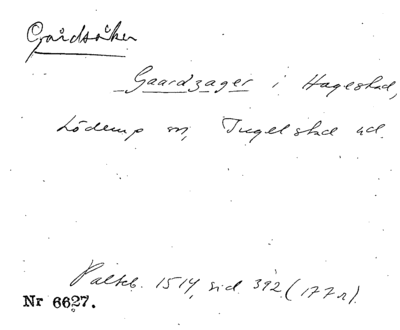 Gårdsåker
Gaardzager i Hagestad,
Löderup sn, Ingelstad hd.
Palteb. 1514, sid 392 (177 r).
Nr 6627.